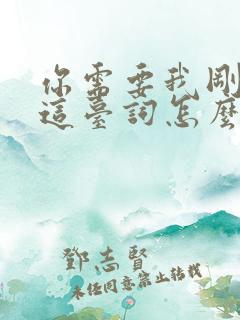 你需要我剛
這臺詞怎麼
鄧志賢
未經同意禁止轉載